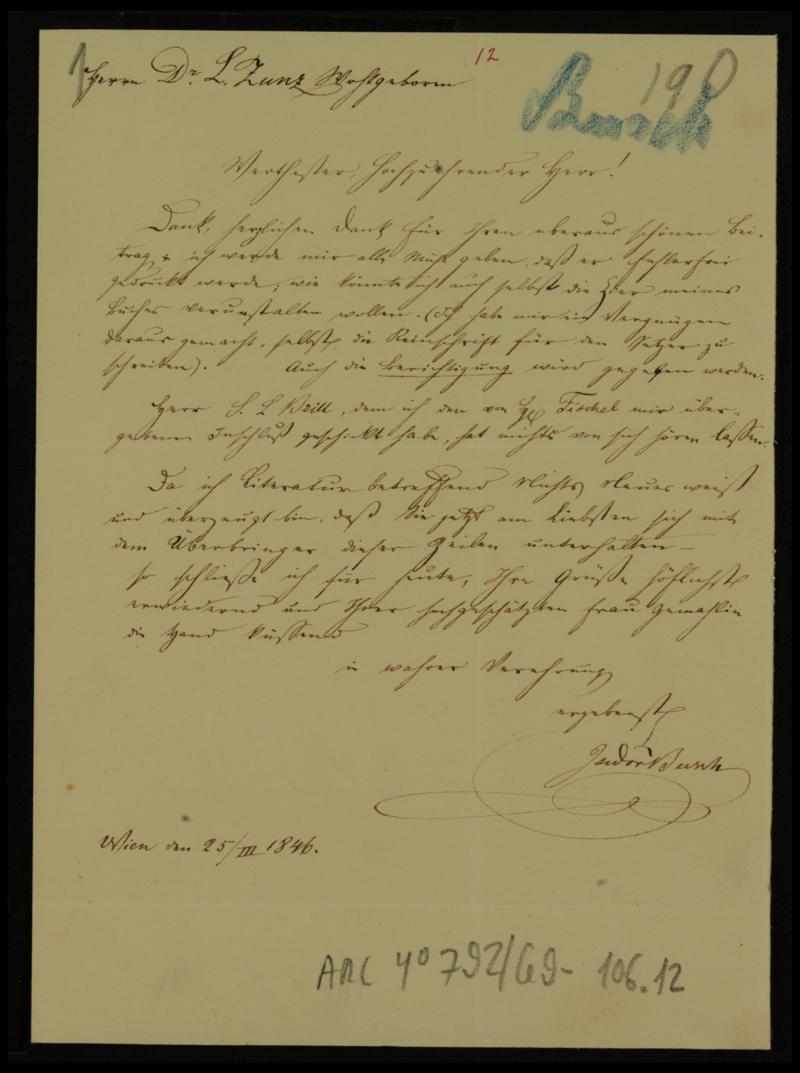 1
12
190
Busch
Herrn Dr. L. Zunz Wohlgeboren
Werthester, Hochzuehrender Herr!
Dank, herzlichen Dank für Ihren überaus schönen Bei-
trag, ich werde mir alle Mühe geben, daß er fehlerfrei
gedruckt werde; wie könnte ich auch selbst die Zier meines
Buches verunstalten wollen. (Ich habe mir ein Vergnügen
daraus gemacht, selbst die Reinschrift für den Setzer zu
schreiben). Auch die Berichtigung wird gegeben werden.
Herr S. L. Brill, dem ich den von H. Fischel mir über-
gebenen Inschluß geschickt habe, hat nichts von sich hören lassen.
Da ich Literatur betreffend Nichts Neues weiß
und überzeugt bin, daß Sie jetzt am Liebsten sich mit
dem Überbringer dieser Zeilen unterhalten –
so schließe ich für heute, Ihre Grüße höflichst
erwiedernd und Ihrer hochgeschätzten Frau Gemahlin
die Hand küssend
in wahrer Verehrung
ergebenst
Isidor Busch
Wien den 25/III 1846.
ARC 4º 792/G9- 106.12